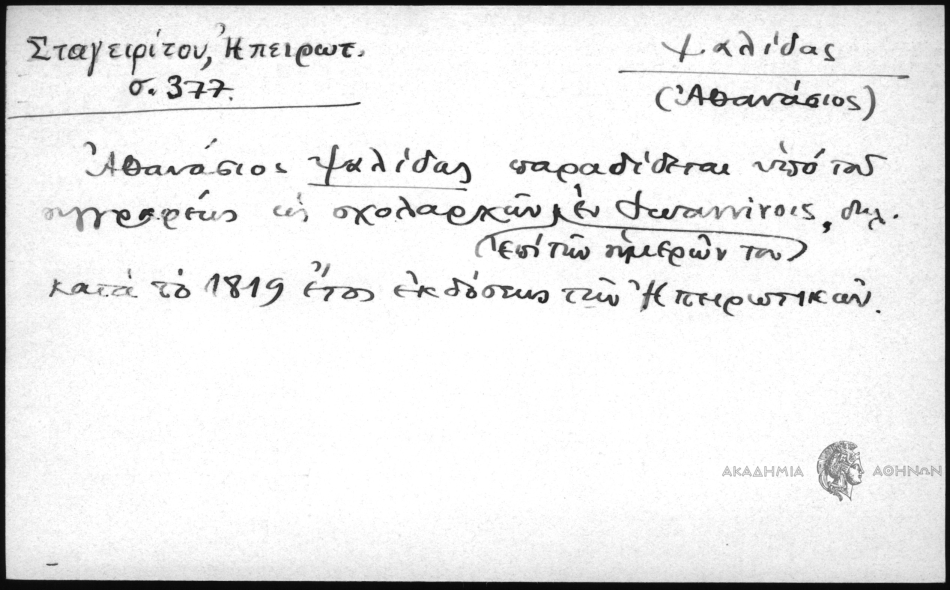 Σταγειρίτου, Ἠπειρωτ.
σ. 377.
Ψαλίδας
(Ἀθανάσιος)
Ἀθανάσιος Ψαλίδας παραδίδεται ὑπό τοῦ
συγγραφέως ὡς σχολαρχῶν ἐν Ἰωαννίνοις, δηλ.
(ἐπί τῶν ἡμερῶν του)
κατά τό 1819 ἔτος ἐκδόσεως τῶν Ἠπειρωτικῶν.
ΑΚΑΔΗΜΙΑ ΑΘΗΝΩΝ